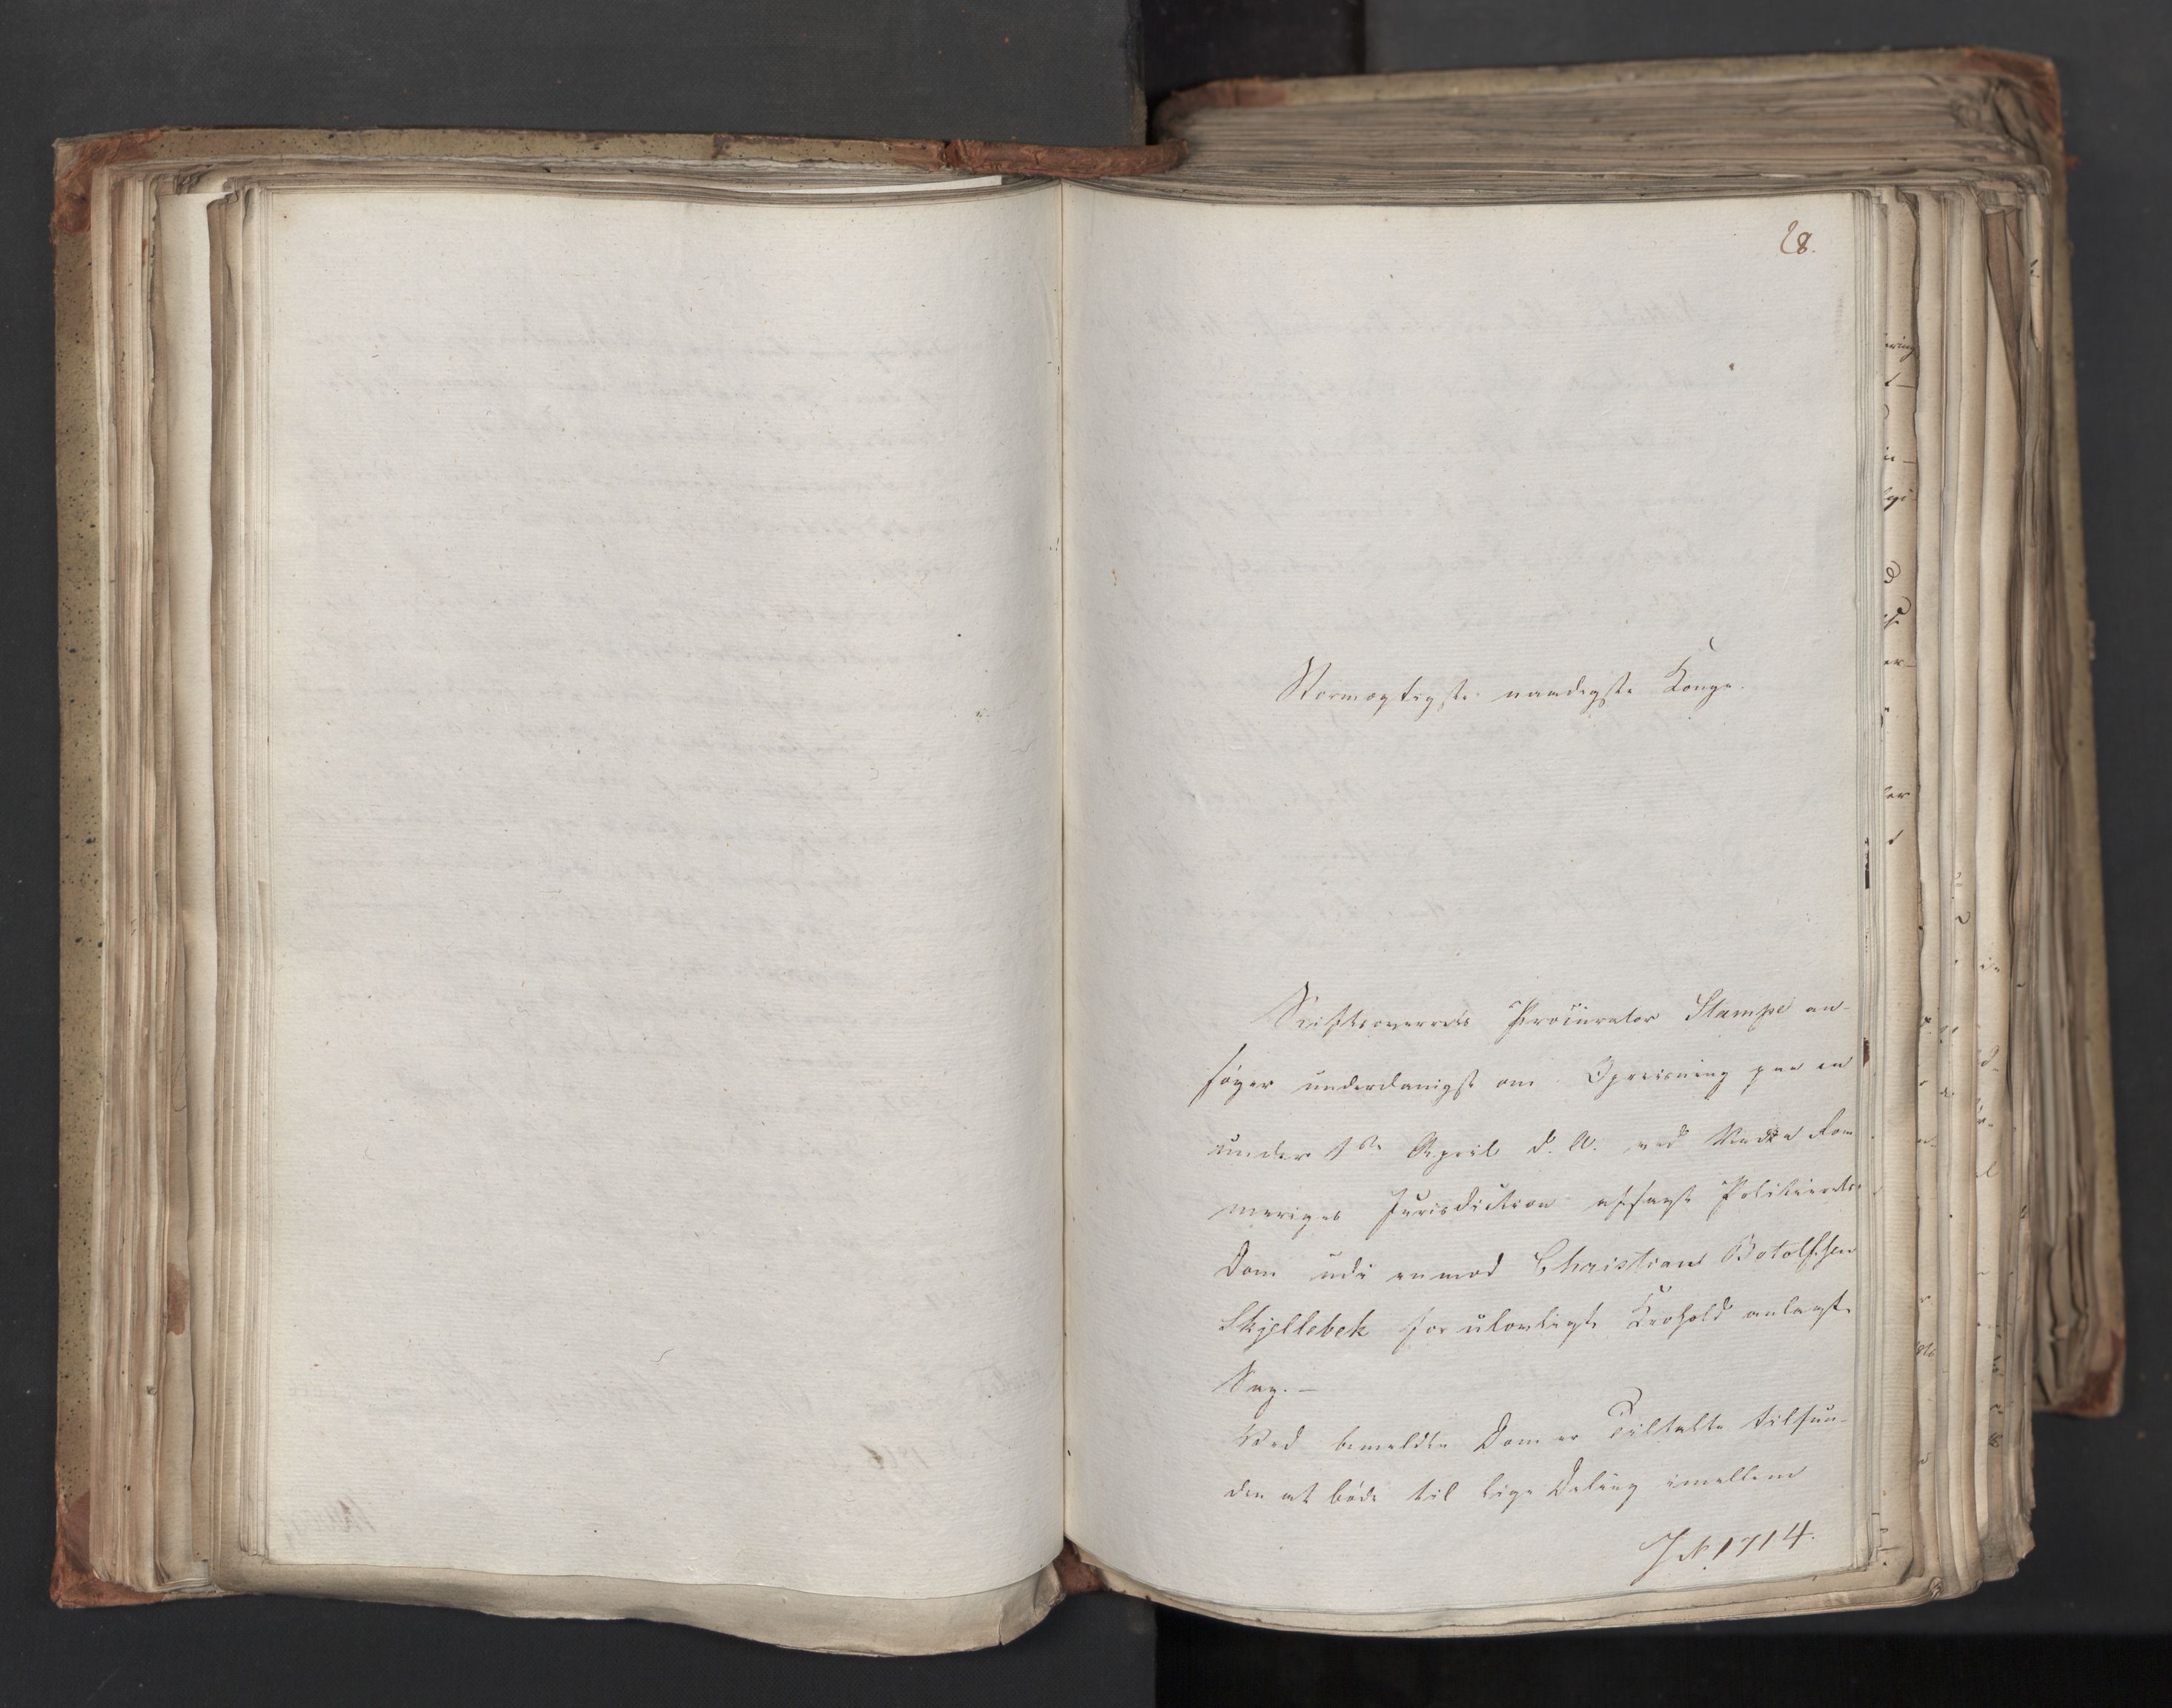 28.
Stormægtigste naadigste Konge.
Stiftsoverrets Procurator Stampe an-
søger underdanigst om Opreisning paa en
under 1ste April d. A. ved Vadsø Som
meriges Jurisdiction afsagt Politierets
Dom udi en mod Christian Botolfssen
Skjellebek for ulovligt Krohold anlagt
Sag. —
Ved bemeldte Dom er Tiltalte tilfun-
den at bøde til lige Deling imellem
J N. 1714.